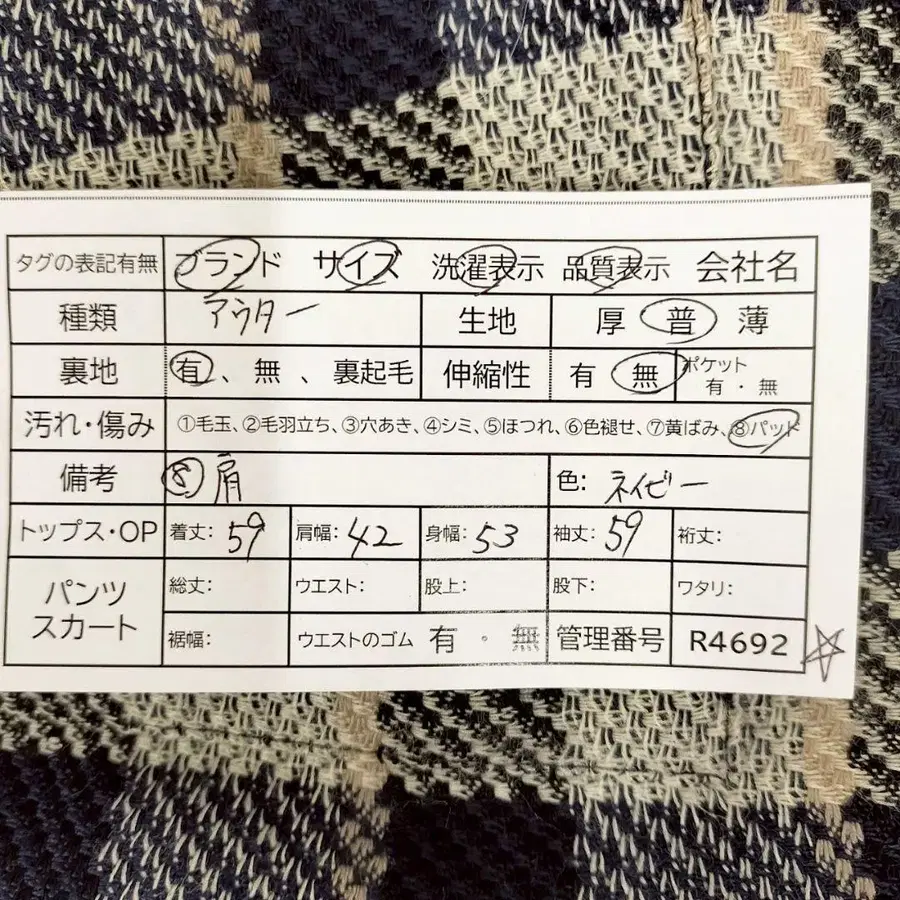 タグの表記有無 ブランド サイズ 洗濯表示 品質表示 会社名
種類 アウター 生地 厚 普 薄
裏地 有、無、裏起毛 伸縮性 有 無 ポケット 有・無
汚れ・傷み ①毛玉、②毛羽立ち、③穴あき、④シミ、⑤ほつれ、⑥色褪せ、⑦黄ばみ、⑧パッド
備考 ⑧肩 色: ネイビー
トップス・OP 着丈: 59 肩幅: 42 身幅: 53 袖丈: 59 裄丈:
パンツ スカート 総丈: ウエスト: 股上: 股下: ワタリ:
裾幅: ウエストのゴム 有・無 管理番号 R4692